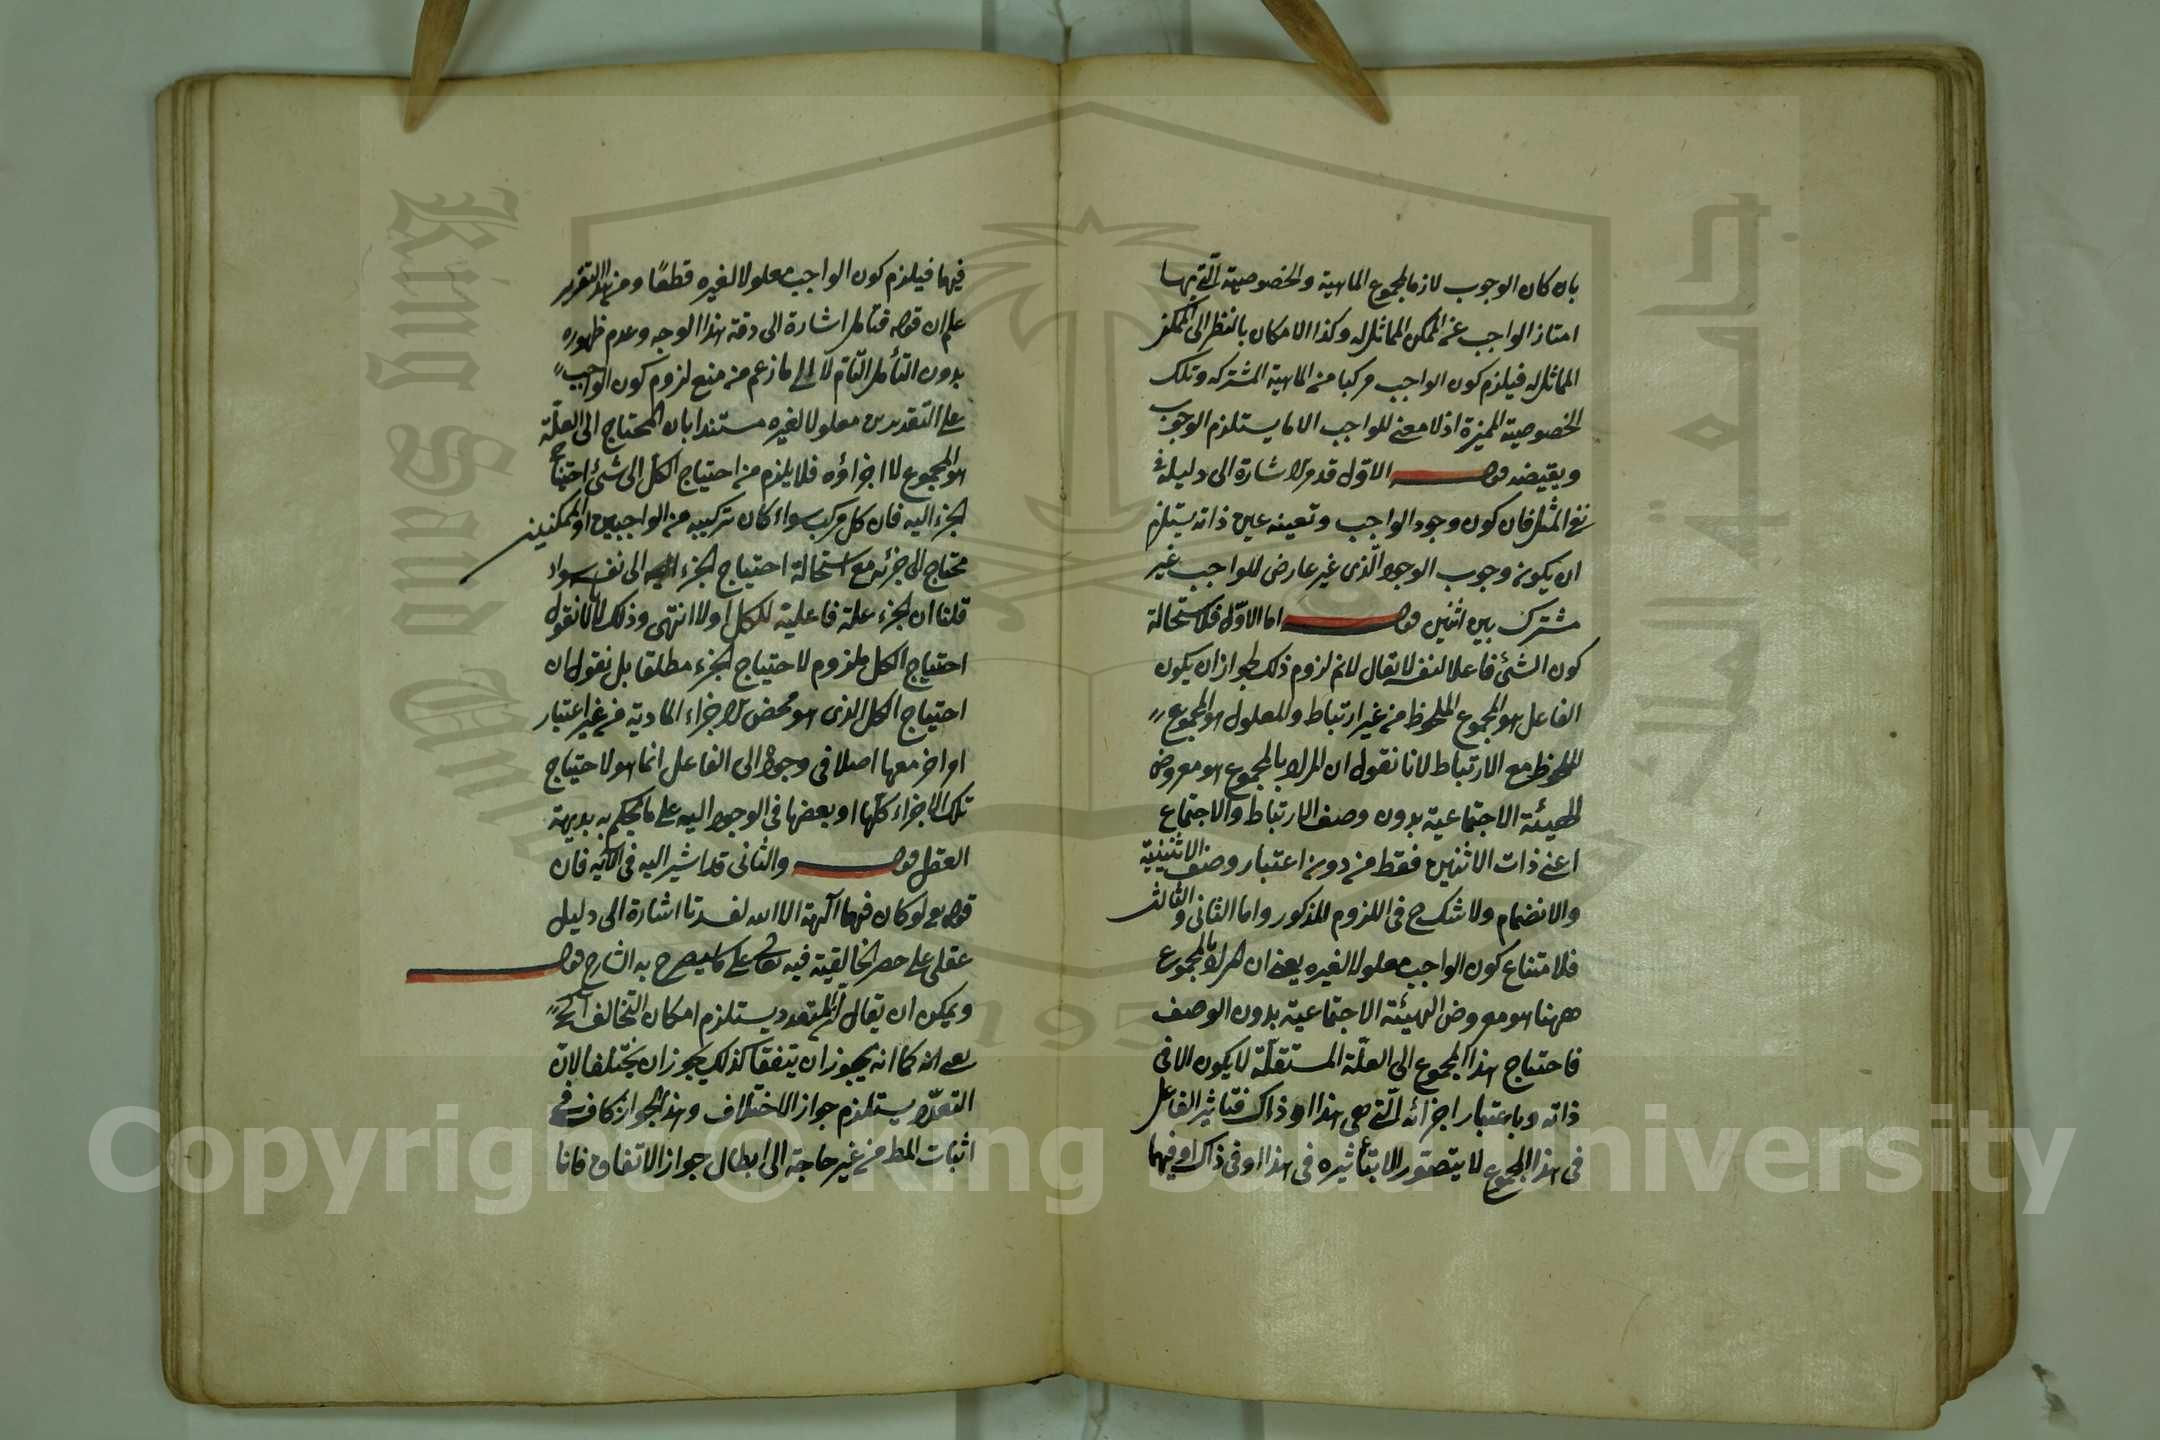 بان كان الوجوب لازما لمجموع الماهية والخصوصية التى بها
امتاز الواجب عن الممكن المماثل له وكذا الامكان بالنظر الى الممكن
المماثل له فيلزم كون الواجب مركبا من الماهية المشتركه وتلك
الخصوصية المميزة اذ لا معنى للواجب الا ما يستلزم الوجوب
ويقيضه قوله الاوّل قد مرّ الاشارة الى دليله فى
نفى المثل فان كون وجود الواجب وتعينه عين ذاته يستلزم
ان يكون وجوب الوجود الّذى غير عارض للواجب غير
مشترك بين اثنين قوله اما الاوّل فلاستحالة
كون الشئ فاعلا لنفسه لا يقال لانم لزوم ذلك لجواز ان يكون
الفاعل هو المجموع الملحوظ من غير ارتباط والمعلول هو المجموع
الملحوظ مع الارتباط لانا نقول ان المراد بالمجموع هو معروض
الهيئة الاجتماعية بدون وصف الارتباط والاجتماع
اعنى ذات الاثنين فقط من دون اعتبار وصف الاثنينية
والانضمام ولا شك ح فى اللزوم المذكور واما الثانى والثالث
فلامتناع كون الواجب معلولا لغيره يعنى ان المراد بالمجموع
ههنا هو معروض الهيئة الاجتماعية بدون الوصف
فاحتياج هذا المجموع الى العلّة المستقلّة لا يكون الا فى
ذاته وباعتبار اجزائه الّتى هى هذا او ذاك فتاثير الفاعل
فى هذا المجموع لا يتصوّر الا بتأثيره فى هذا او فى ذاك او فيهما
فيهما فيلزم كون الواجب معلولا لغيره قطعًا ومن هذا التقرير
علم ان قوله فتامل اشارة الى دقة هذا الوجه وعدم ظهوره
بدون التأمل التّام لا الى ما زعم من منع لزوم كون الواجب
على التقديرين معلولا لغيره مستندا بان المحتاج الى العلّة
هو المجموع لا اجزاؤه فلا يلزم من احتياج الكل الى شئ احتياج
الجزء اليه فان كل مركب سواء كان تركيبه من الواجبين او الممكنين
محتاج الى جزئه مع استحالة احتياج الجزء الى نفسه سواء
قلنا ان الجزء علة فاعلية للكل او لا انتهى وذلك لانا لا نقول
احتياج الكل ملزوم لاحتياج الجزء مطلقا بل نقول ان
احتياج الكل الذى هو محض الاجزاء المادية من غير اعتبار
امر اخر معها اصلا فى وجوده الى الفاعل انما هو لاحتياج
تلك الاجزاء كلّها او بعضها فى الوجود اليه على ما يحكم به بديهة
العقل قوله والثانى قد اشير اليه فى الآيه فان
قوله تع لو كان فيهما آلهة الا الله لفسدتا اشارة الى دليل
عقلى على حصر الخالقية فيه تعالى على ما سيصرح به الشارح قوله
ويمكن ان يقال ان التعدد يستلزم امكان التخالف الخ
يعنى انه كما انه يجوز ان يتفقا كذلك يجوز ان يختلفا لان
التعدّد يستلزم جواز الاختلاف وهذا الجواز كاف فى
اثبات المط من غير حاجة الى ابطال جواز الاتفاق فانا
King Saud University
جامعة الملك
1957
Copyright © King Saud University